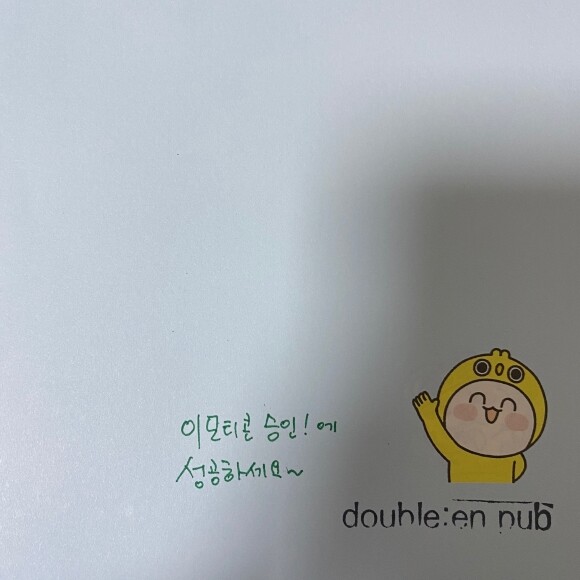 이모티콘 승인! 에
성공하세요~
double:en pub